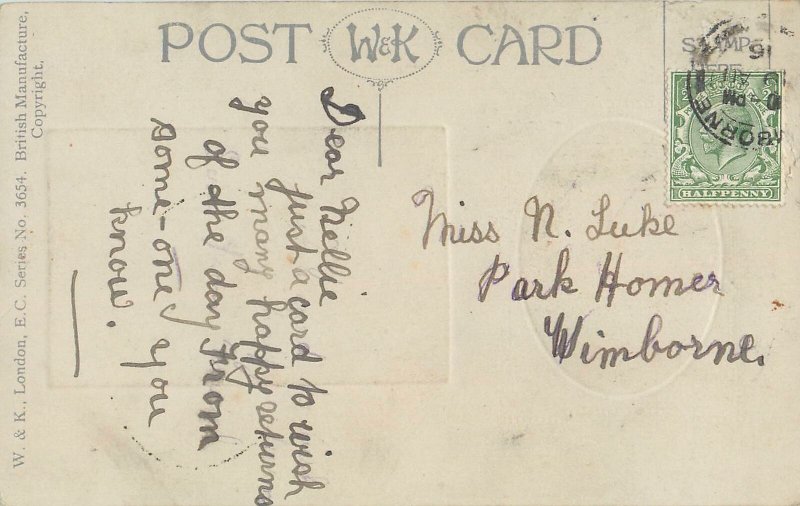 POST W&K CARD
W. & K., London, E.C. Series No. 3654. British Manufacture,
Copyright.
STAMP
HERE
HALFPENNY
Dear Nellie
just a card to wish
you many happy returns
of the day from
some-one you
know.
Miss N. Luke
Park Homer
Wimborne.